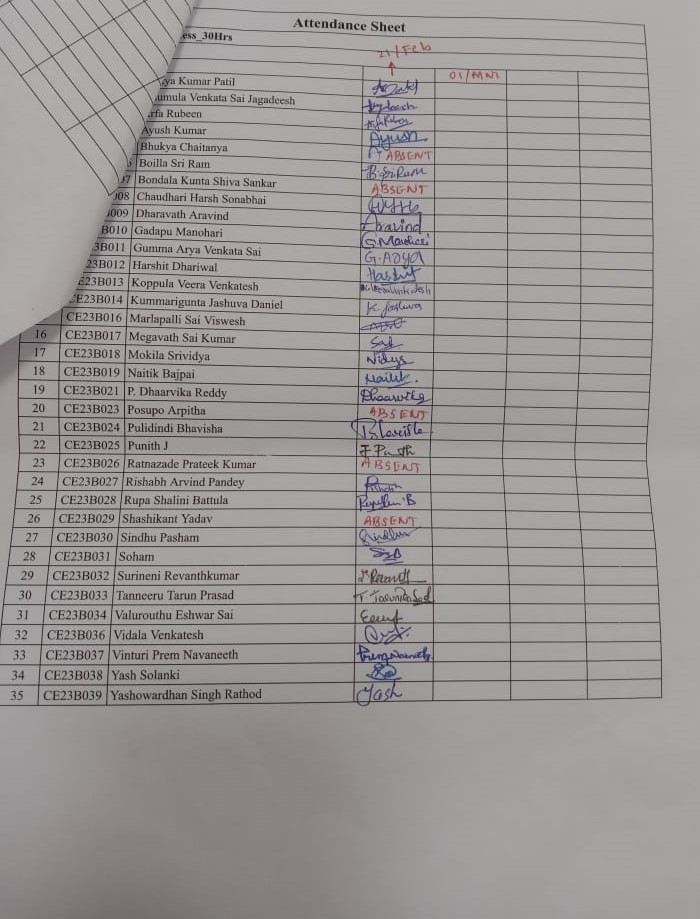 Attendance Sheet
ess_30Hrs
21/Feb
01/MAR
ya Kumar Patil
umula Venkata Sai Jagadeesh
rfa Rubeen
Ayush Kumar Ayush
Bhukya Chaitanya ABSENT
Boilla Sri Ram B. Sri Ram
07 Bondala Kunta Shiva Sankar ABSENT
008 Chaudhari Harsh Sonabhai
009 Dharavath Aravind Aravind
B010 Gadapu Manohari G.Manohari
3B011 Gumma Arya Venkata Sai G.Arya
23B012 Harshit Dhariwal Harshit
E23B013 Koppula Veera Venkatesh
CE23B014 Kummarigunta Jashuva Daniel K. Jashuva
CE23B016 Marlapalli Sai Viswesh
16 CE23B017 Megavath Sai Kumar Sai
17 CE23B018 Mokila Srividya Vidya
18 CE23B019 Naitik Bajpai Naitik.
19 CE23B021 P. Dhaarvika Reddy
20 CE23B023 Posupo Arpitha ABSENT
21 CE23B024 Pulidindi Bhavisha
22 CE23B025 Punith J
23 CE23B026 Ratnazade Prateek Kumar ABSENT
24 CE23B027 Rishabh Arvind Pandey
25 CE23B028 Rupa Shalini Battula
26 CE23B029 Shashikant Yadav ABSENT
27 CE23B030 Sindhu Pasham
28 CE23B031 Soham
29 CE23B032 Surineni Revanthkumar
30 CE23B033 Tanneeru Tarun Prasad
31 CE23B034 Valurouthu Eshwar Sai
32 CE23B036 Vidala Venkatesh
33 CE23B037 Vinturi Prem Navaneeth
34 CE23B038 Yash Solanki
35 CE23B039 Yashowardhan Singh Rathod Yash